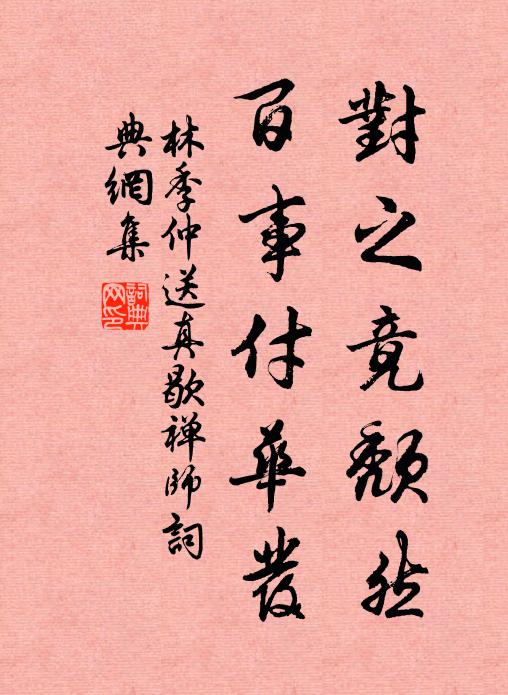 對之竟頹然
百事付華發
林季仲送真歇禅師詞
典網集
詞典網印